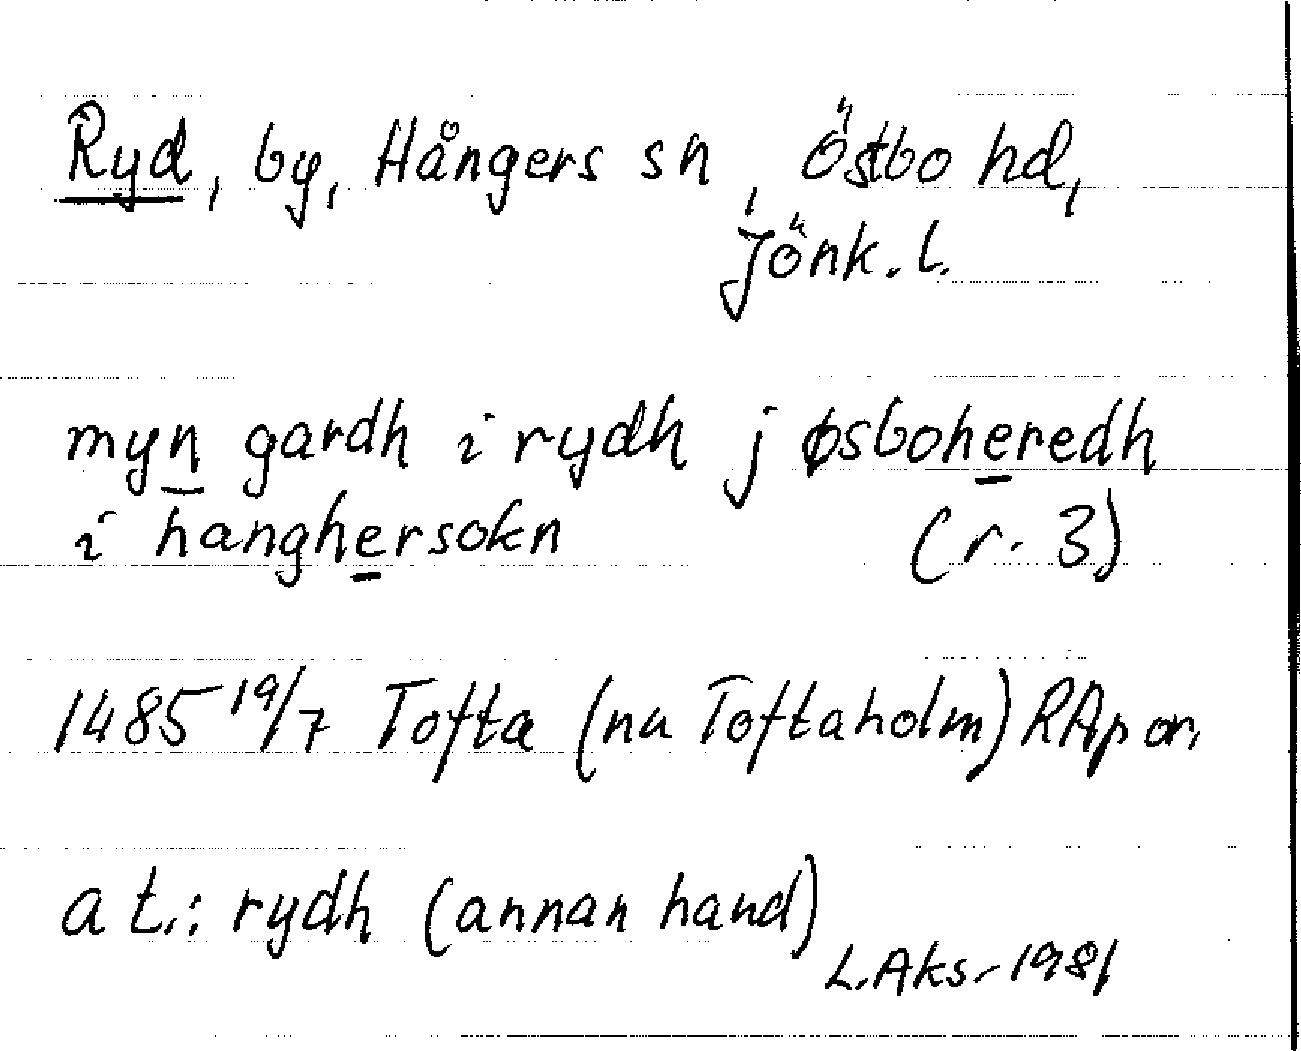 Ryd, by, Hångers sn, Östbo hd,
Jönk. l.
myn gardh i rydh j øsboheredh
i hanghersokn (r. 3)
1485 19/7 Tofta (nu Toftaholm) RAp or.
a t.: rydh (annan hand)
L. Aks. 1981